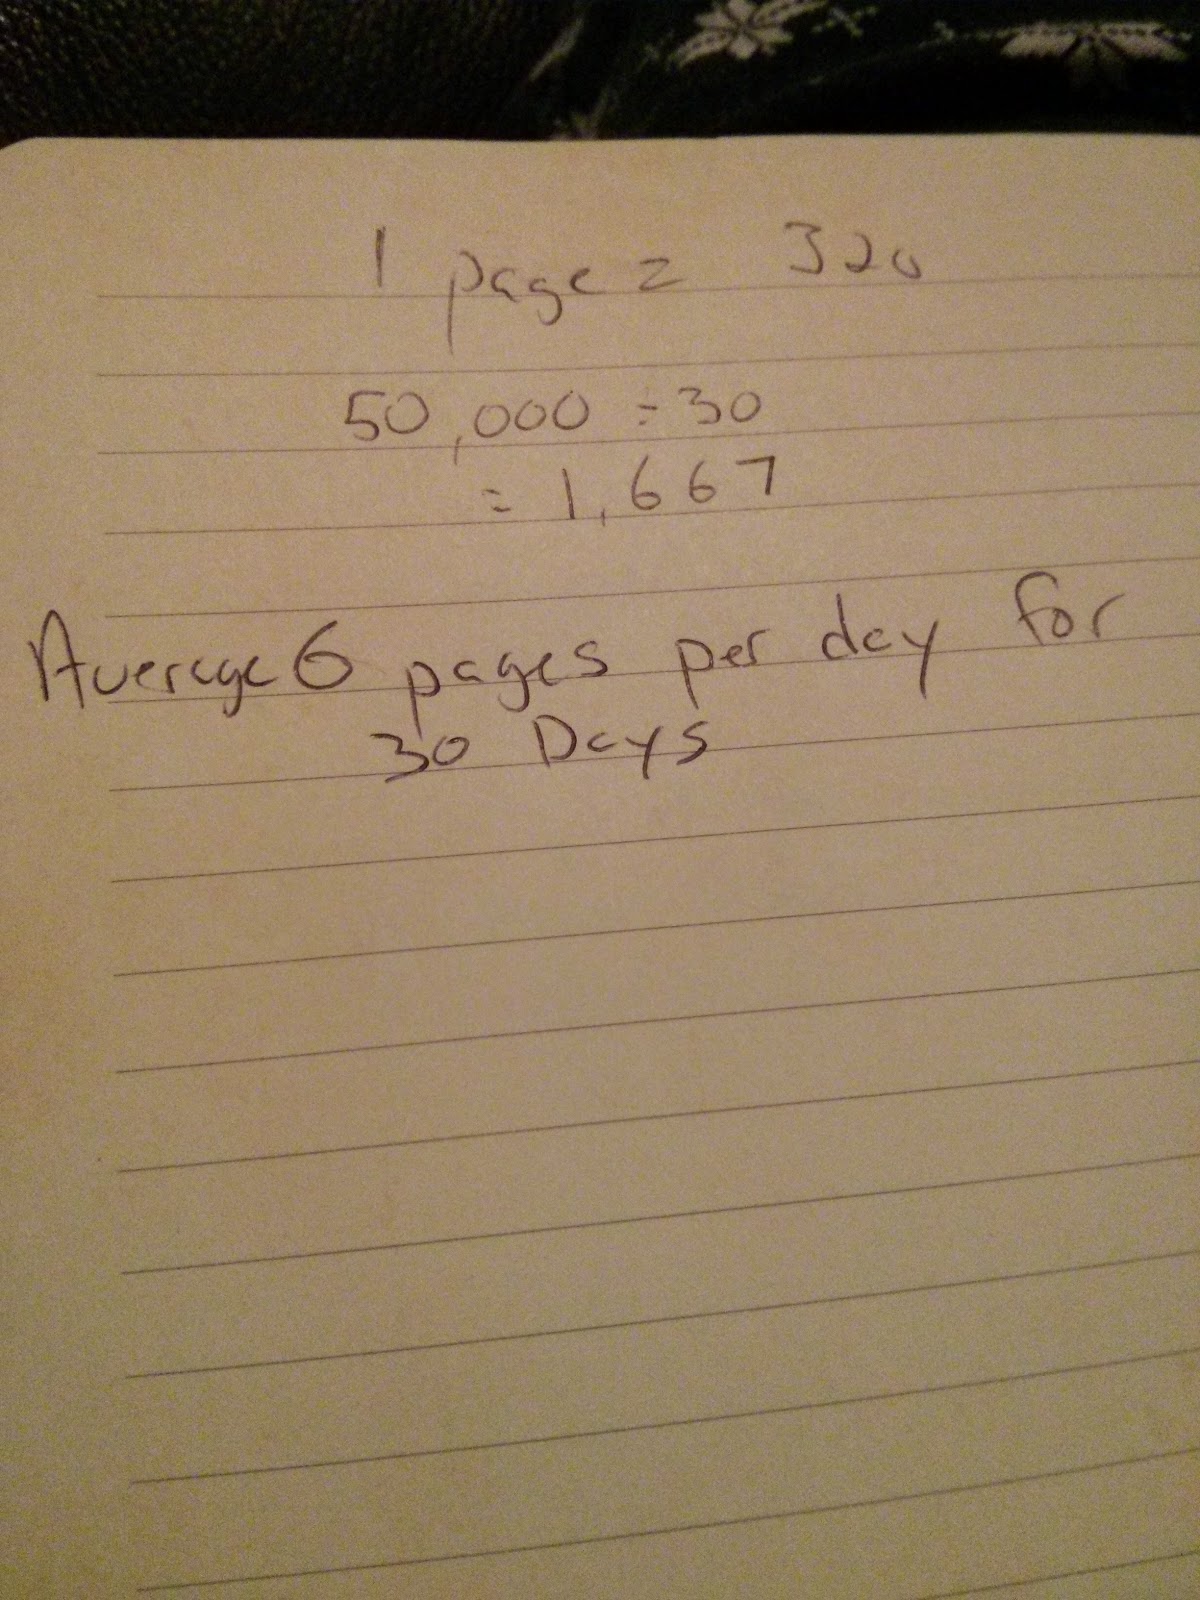 1 page = 320
50,000 ÷ 30
= 1,667
Average 6 pages per day for
30 Days